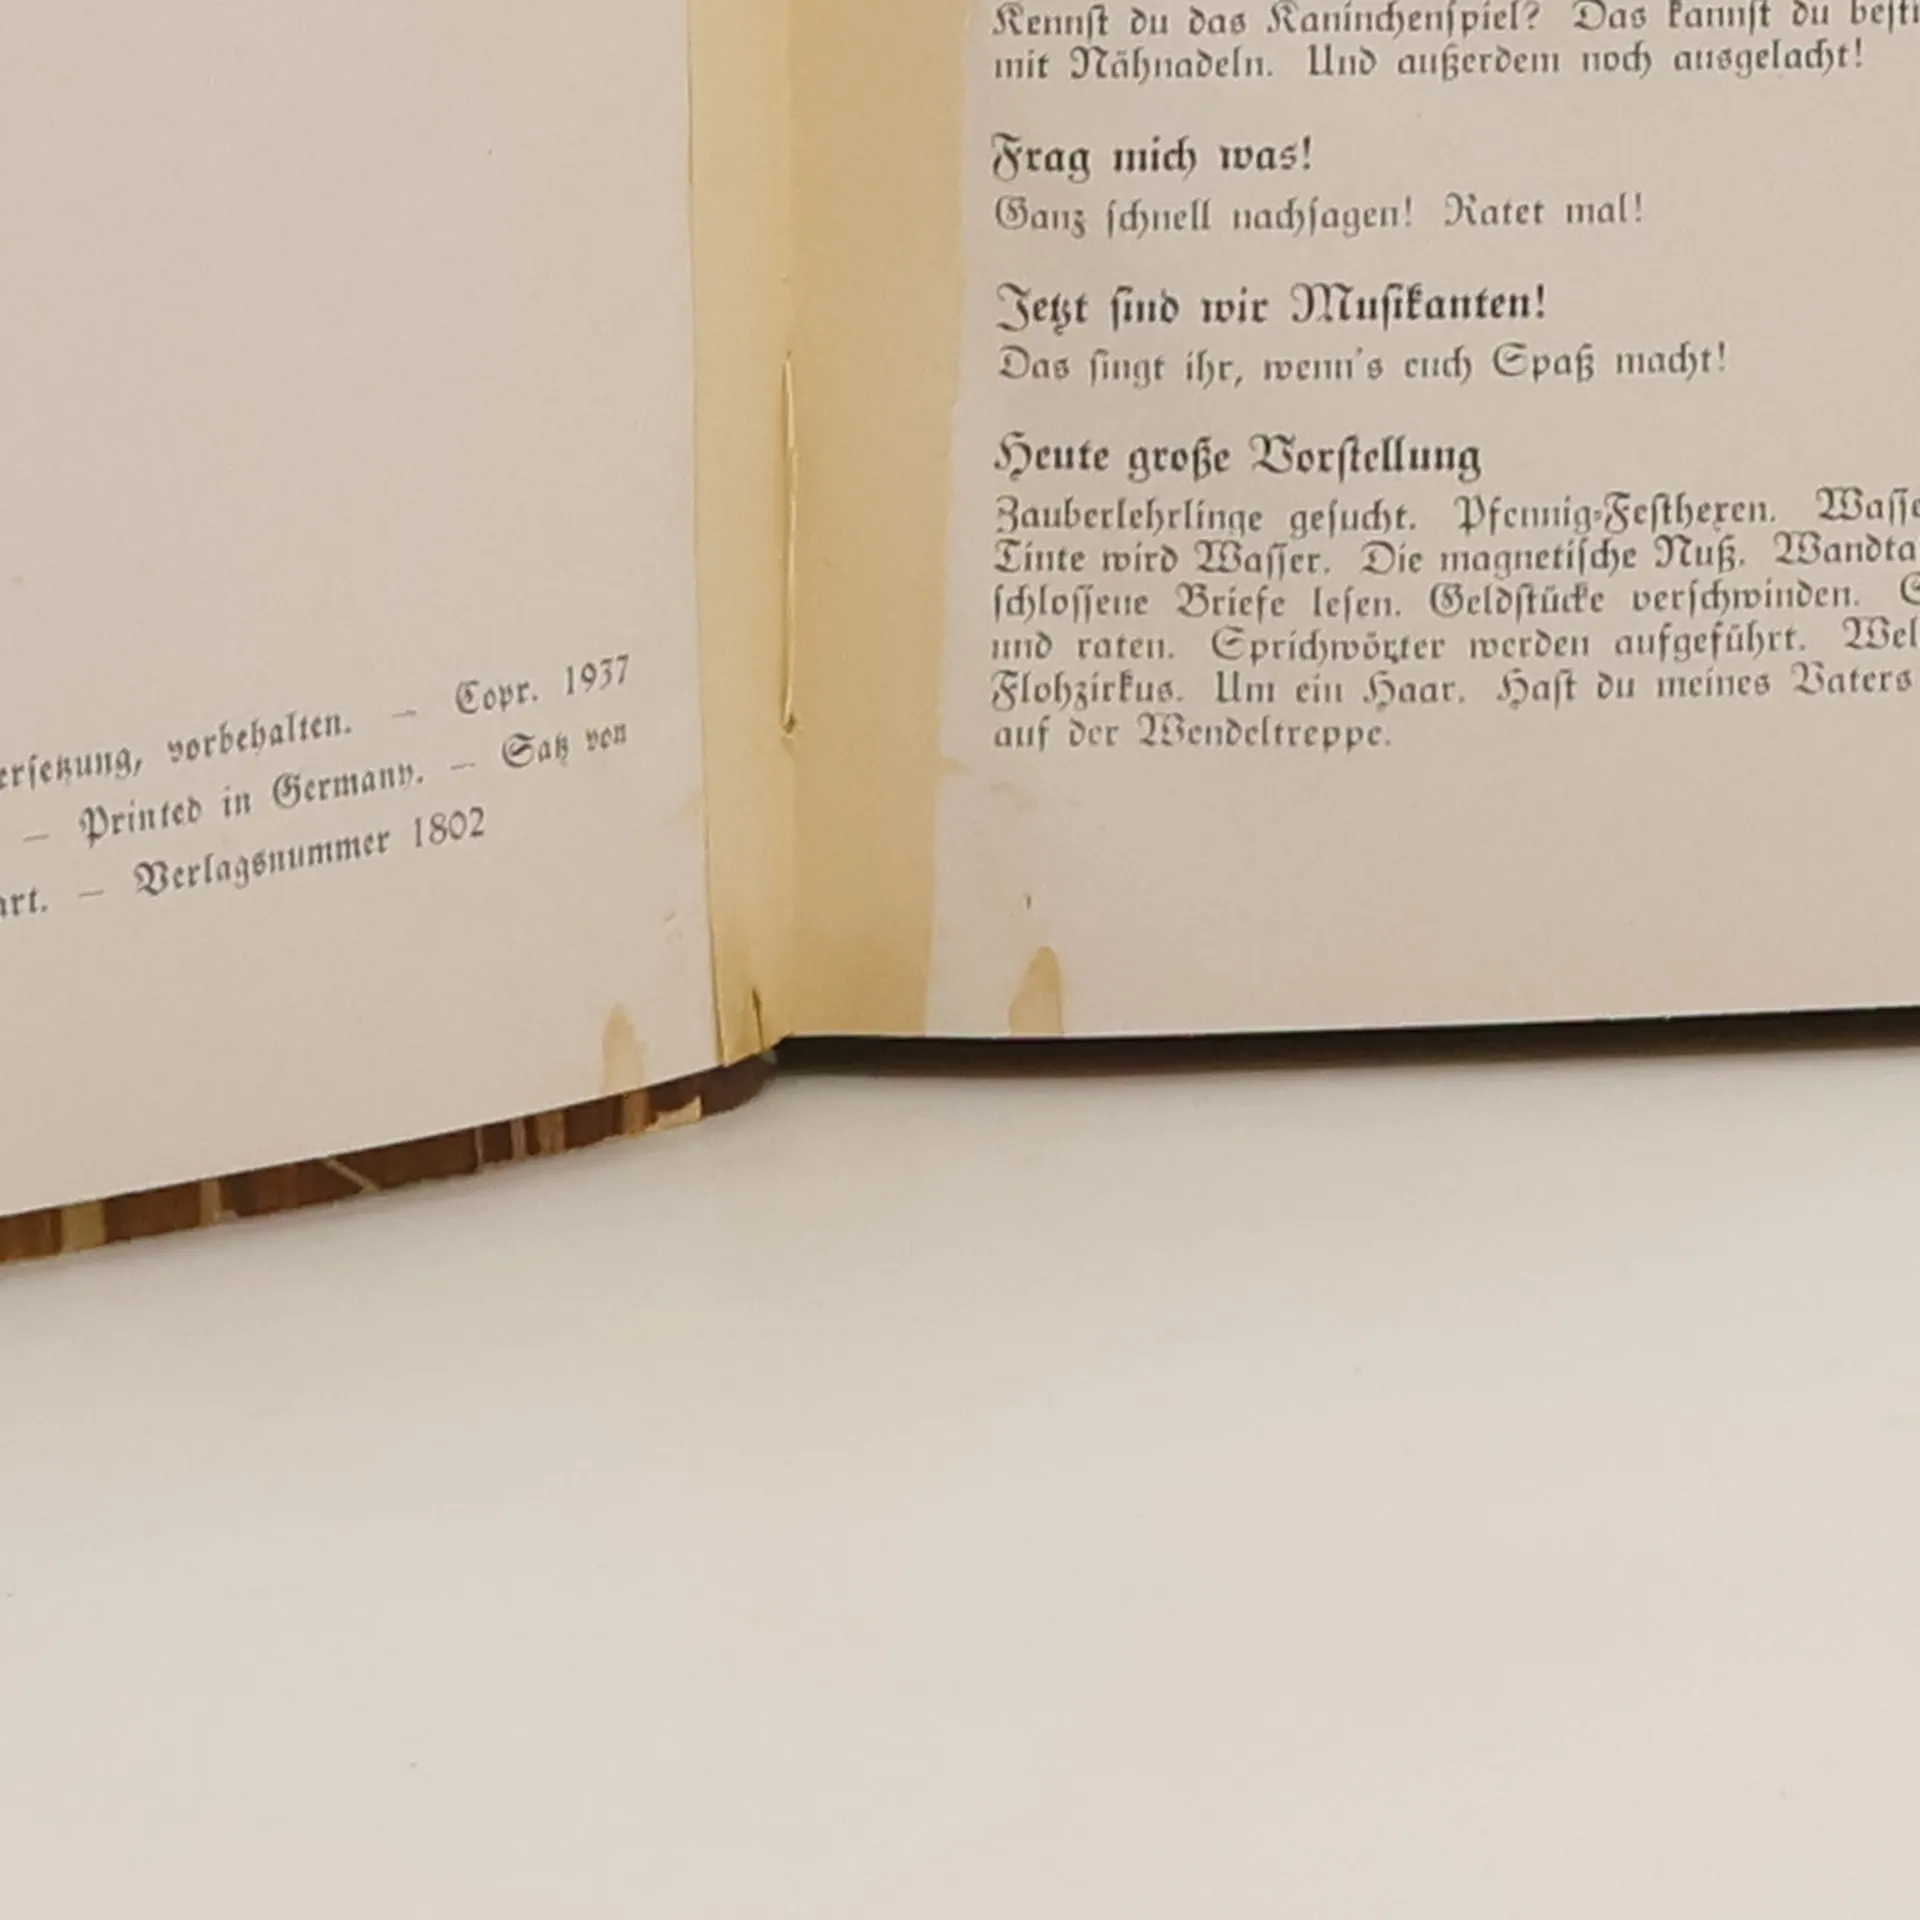 vorbehalten. — Copr. 1937
— Printed in Germany. — Satz von
— Verlagsnummer 1802
Kennst du das Kaninchenspiel? Das kannst du
mit Nähnadeln. Und außerdem noch ausgelacht!
Frag mich was!
Ganz schnell nachsagen! Ratet mal!
Jetzt sind wir Musikanten!
Das singt ihr, wenn's euch Spaß macht!
Heute große Vorstellung
Zauberlehrlinge gesucht. Pfennig-Festhexen.
Tinte wird Wasser. Die magnetische Nuß.
schlossene Briefe lesen. Geldstücke verschwinden.
und raten. Sprichwörter werden aufgeführt.
Flohzirkus. Um ein Haar. Hast du meines Vaters
auf der Wendeltreppe.